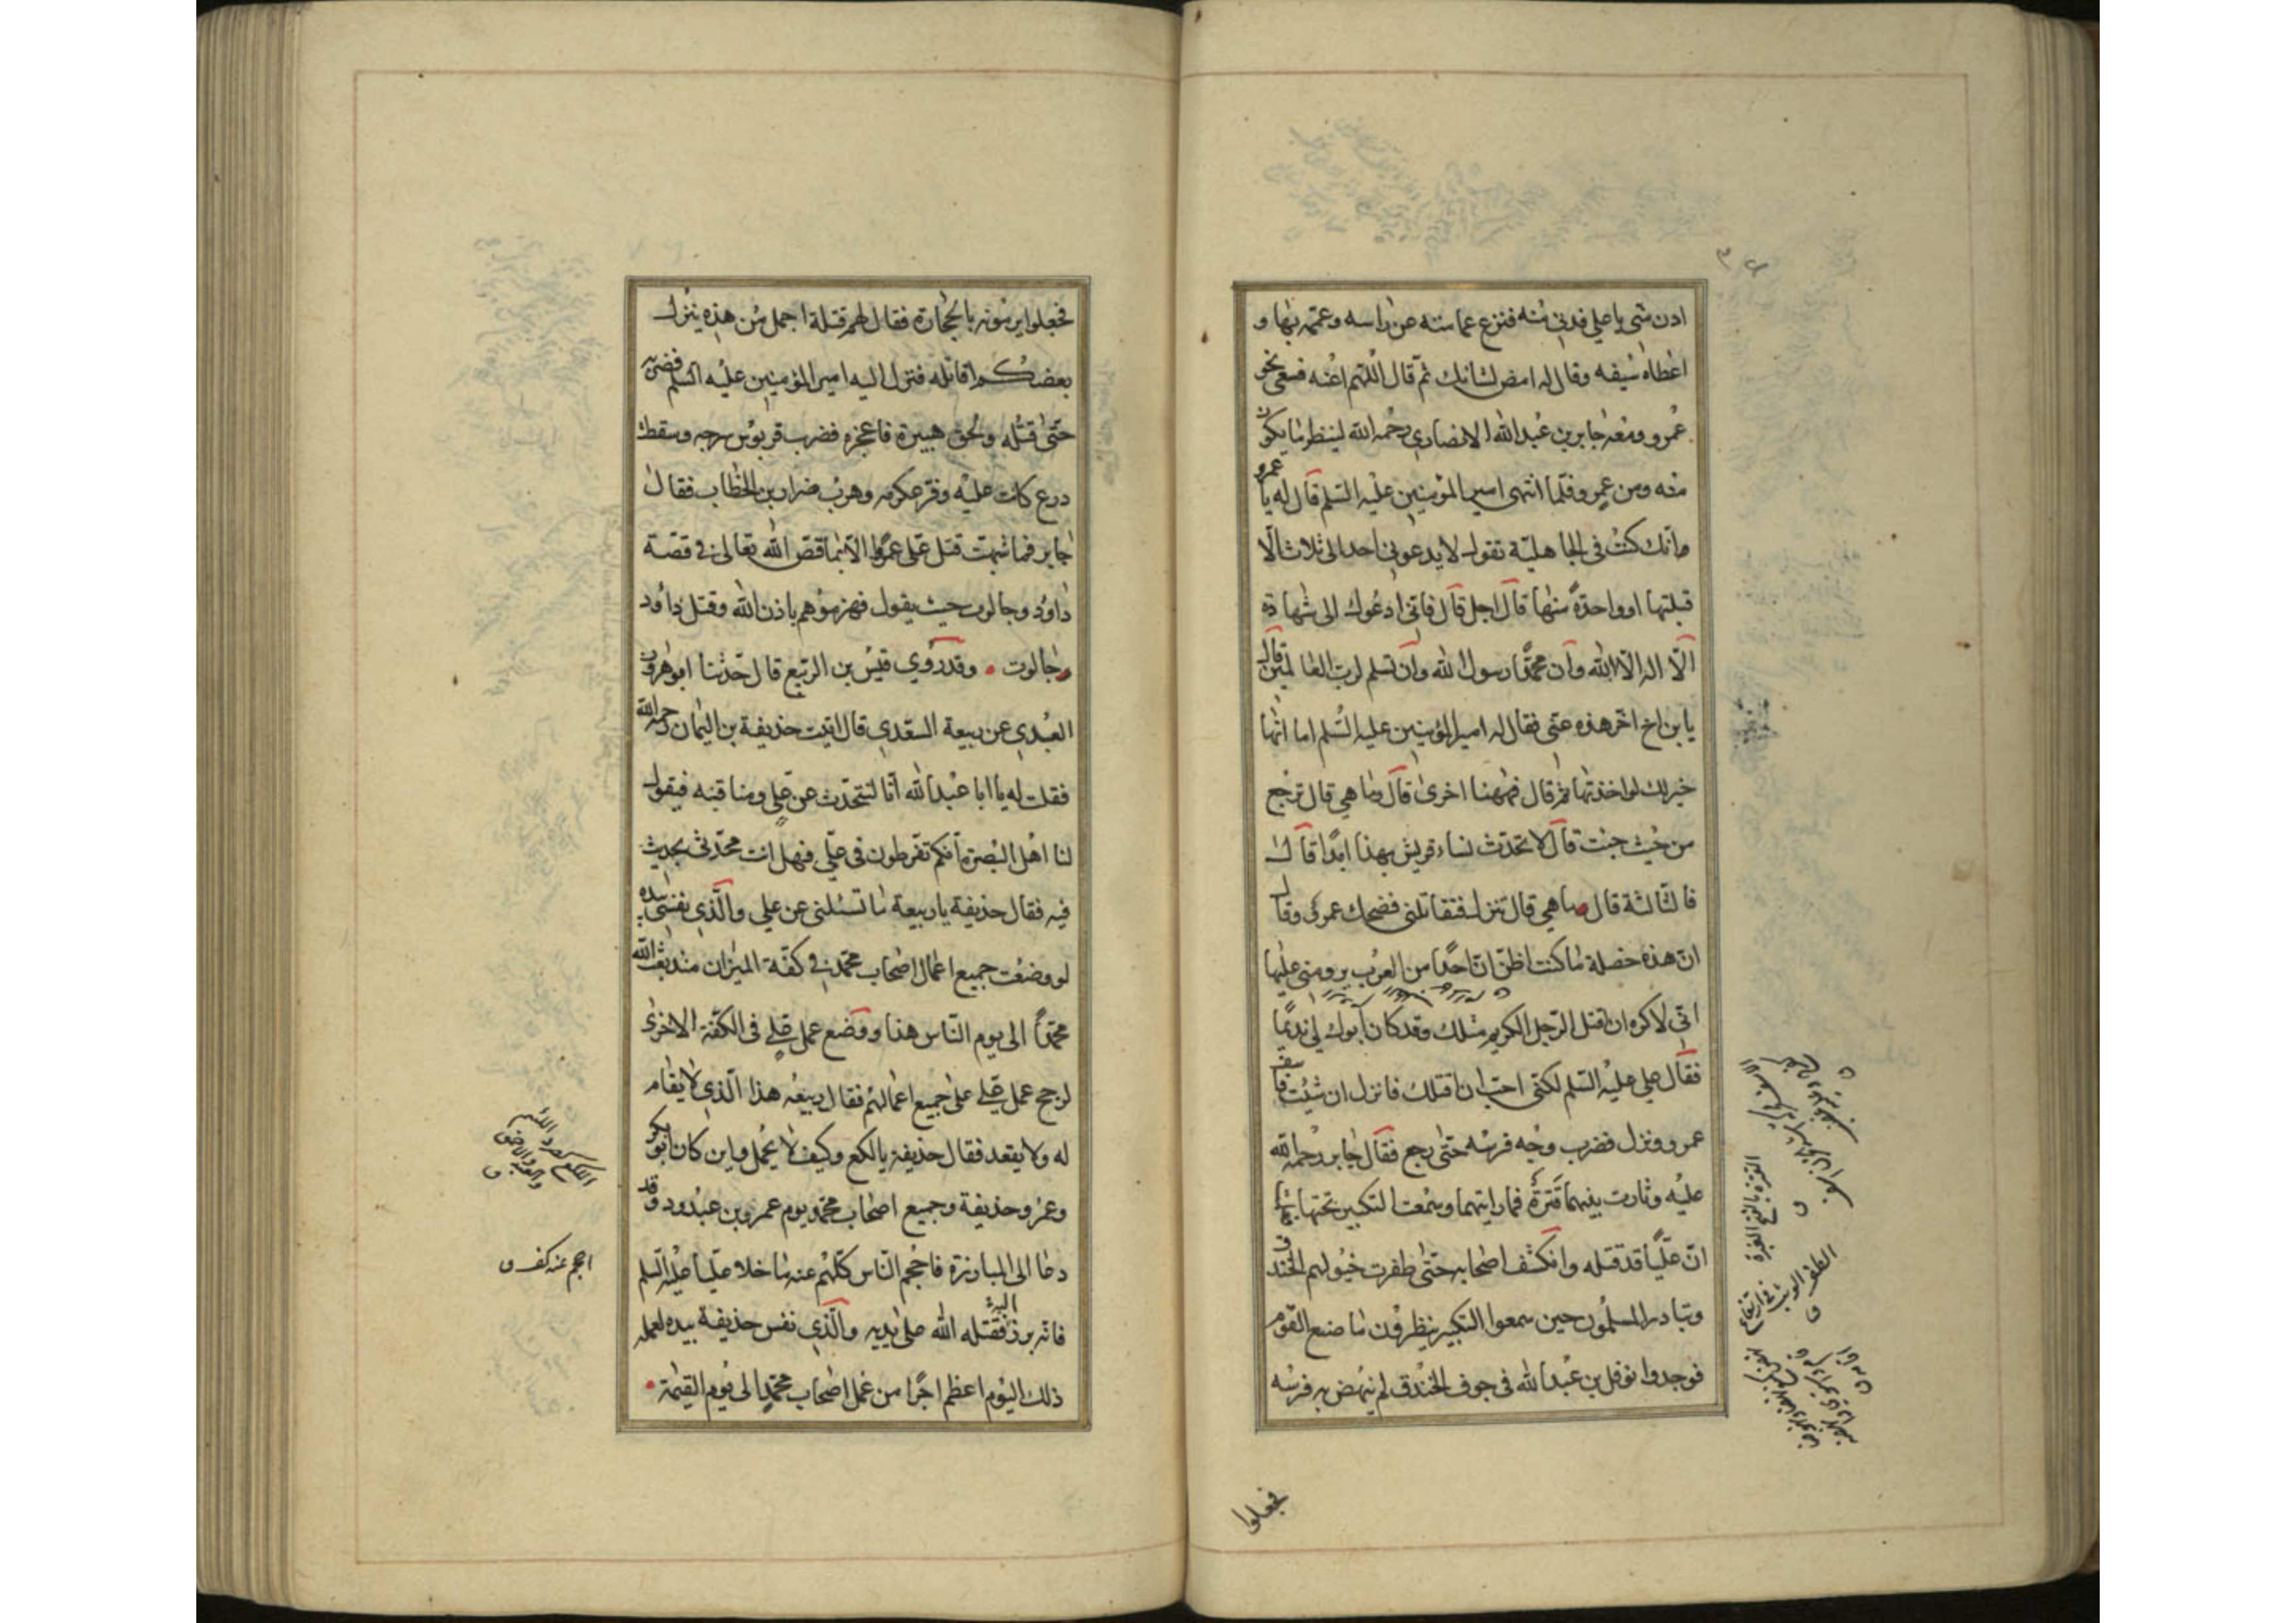 ادن مني يا علي فدنى منه فنزع عمامته عن راسه وعممه بها و
اعطاه سيفه وقال له امض لشانك ثم قال اللهم اعنه فسعى نحو
عمرو ومعه جابر بن عبد الله الانصاري رحمه الله لينظر ما يكون
منه ومن عمرو فلما انتهى امير المؤمنين عليه السلم قال له يا عمرو
انك كنت في الجاهلية تقول لا يدعوني احد الى ثلاث الا
قبلتها او واحدة منها قال اجل قال فاني ادعوك الى شهادة
الا اله الا الله وان محمدا رسول الله وان تسلم لرب العالمين قال
يا بن اخ اخر هذه عني فقال له امير المؤمنين عليه السلم اما انها
خير لك لو اخذتها ثم قال فههنا اخرى قال وما هي قال ترجع
من حيث جئت قال لا تحدث نساء قريش بهذا ابدا قال
فالثالثة قال وما هي قال تنزل فتقاتلني فضحك عمرو وقال
ان هذه خصلة ما كنت اظن ان احدا من العرب يرومني عليها
اني لاكره ان اقتل الرجل الكريم مثلك وقد كان ابوك لي نديما
فقال علي عليه السلم لكني احب ان اقتلك فانزل ان شئت فاسف
عمرو ونزل فضرب وجه فرسه حتى رجع فقال جابر رحمة الله
عليه وثارت بينهما قترة فما رايتهما وسمعت التكبير تحتها فعلمت
ان عليا قد قتله وانكشف اصحابه حتى طفرت خيولهم الخندق
وتبادر المسلمون حين سمعوا التكبير ينظرون ما صنع القوم
فوجدوا نوفل بن عبد الله في جوف الخندق لم ينهض به فرسه
فجعلوا
فجعلوا يرمونه بالحجارة فقال لهم قتلة اجمل من هذه ينزل
بعضكم اقاتله فنزل اليه امير المؤمنين عليه السلم فضربه
حتى قتله ولحق هبيرة فاعجزه فضرب قربوس سرجه وسقطت
درع كانت عليه وفر عكرمه وهرب ضرار بن الخطاب فقال
جابر فما شبهت قتل علي عمروا الا بما قص الله تعالى في قصة
داود وجالوت حيث يقول فهزموهم باذن الله وقتل داود
جالوت وقد روي قيس بن الربيع قال حدثنا ابو هرون
العبدي عن ربيعة السعدي قال اتيت حذيفة بن اليمان رحمه الله
فقلت له يا ابا عبد الله انا لنتحدث عن علي ومناقبه فيقول
لنا اهل البصرة انكم تفرطون في علي فهل انت محدثي بحديث
فيه فقال حذيفة يا ربيعة ما تسئلني عن علي والذي نفسي بيده
لو وضعت جميع اعمال اصحاب محمد في كفة الميزان منذ بعث الله
محمدا الى يوم الناس هذا ووضع عمل علي في الكفة الاخرى
لرجح عمل علي على جميع اعمالهم فقال ربيعه هذا الذي لا يقام
له ولا يقعد فقال حذيفة يا لكع وكيف لا يحمل واين كان ابو بكر
وعمر وحذيفة وجميع اصحاب محمد يوم عمرو بن عبدود وقد
دعا الى المبارزة فاحجم الناس كلهم عنه ما خلا عليا عليه السلم
فانه برز اليه فقتله الله على يديه والذي نفس حذيفة بيده لعمله
ذلك اليوم اعظم اجرا من عمل اصحاب محمد الى يوم القيمة
احجم عنه كف ق